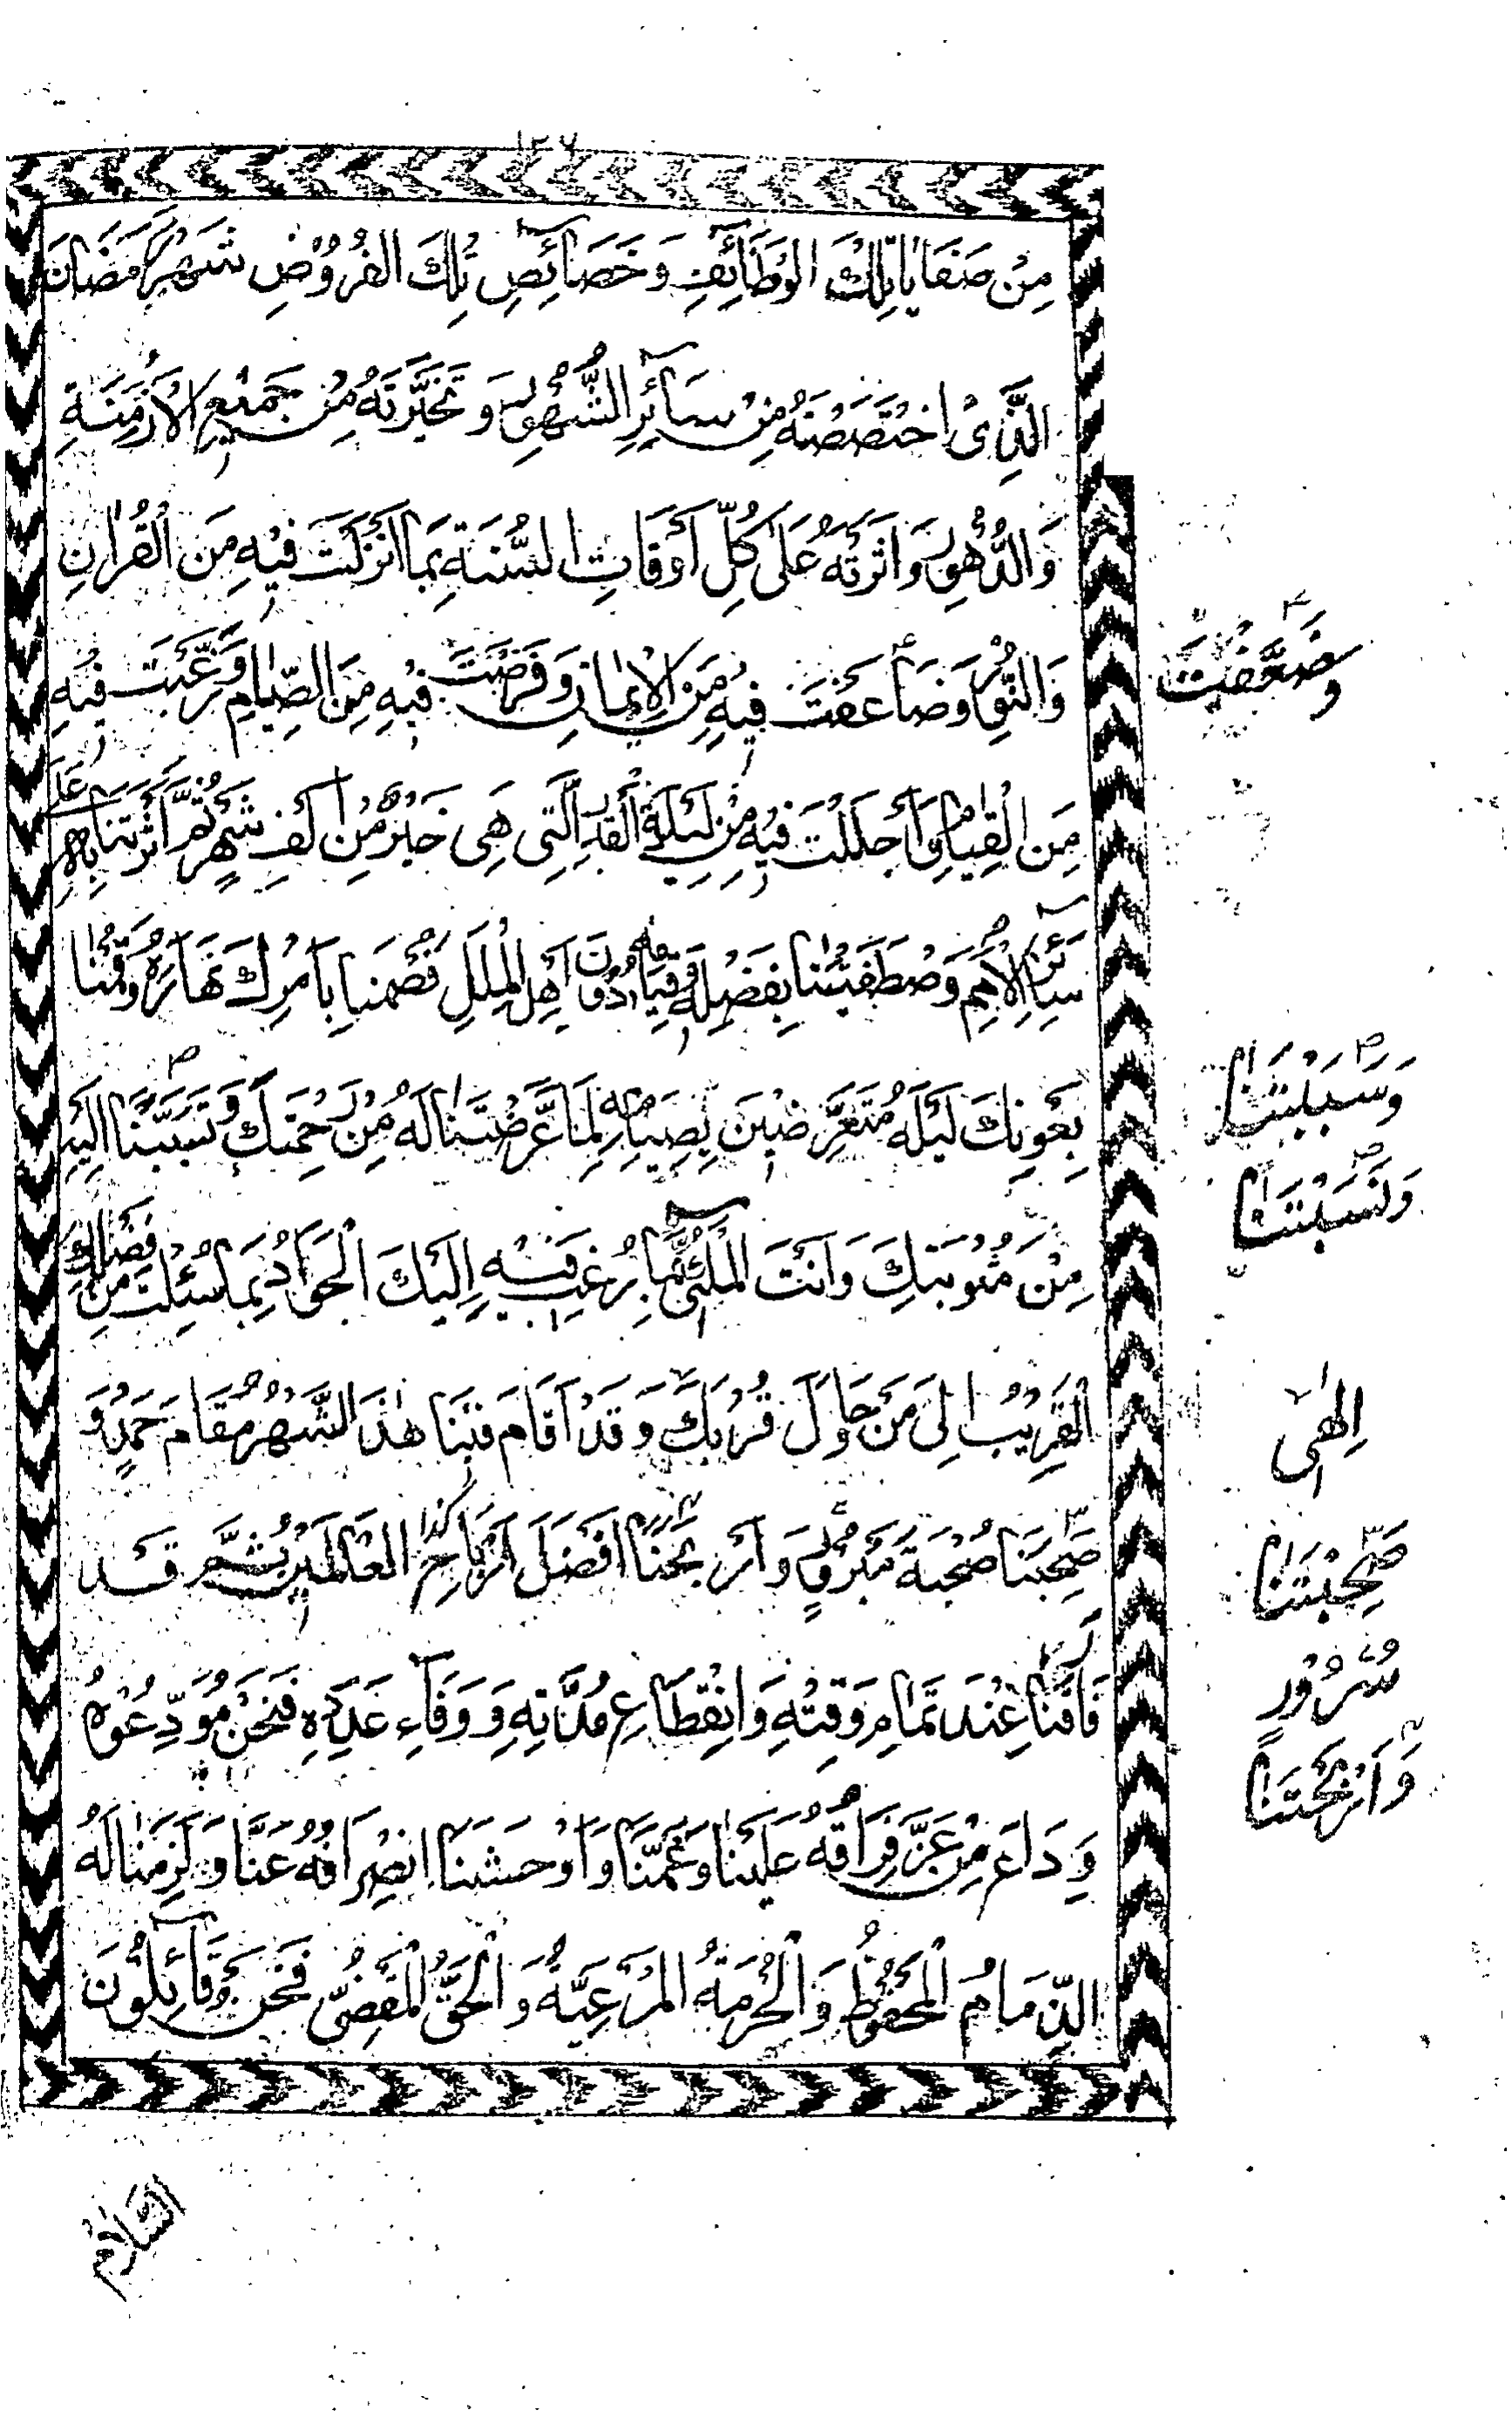 ١٢٧
مِنْ صَفَايَا تِلْكَ الْوَظَآئِفِ وَخَصَآئِصِ تِلْكَ الْفُرُوْضِ شَهْرَ رَمَضَانَ
الَّذِىْ اخْتَصَصْتَهُ مِنْ سَآئِرِ الشُّهُوْرِ وَتَخَيَّرْتَهُ مِنْ جَمِيْعِ الْاَزْمِنَةِ
وَالدُّهُوْرِ وَاٰثَرْتَهُ عَلٰى كُلِّ اَوْقَاتِ السَّنَةِ بِمَا اَنْزَلْتَ فِيْهِ مِنَ الْقُرْاٰنِ
وَالنُّوْرِ وَضَاعَفْتَ فِيْهِ مِنَ الْاِيْمَانِ وَفَرَضْتَ فِيْهِ مِنَ الصِّيَامِ وَرَغَّبْتَ فِيْهِ
مِنَ الْقِيَامِ وَاَجْلَلْتَ فِيْهِ مِنْ لَيْلَةِ الْقَدْرِ الَّتِى هِىَ خَيْرٌ مِنْ اَلْفِ شَهْرٍ ثُمَّ اٰثَرْتَنَا بِهِ عَلٰى
سَآئِرِ الْاُمَمِ وَصْطَفَيْتَنَا بِفَضْلِهِ وَقِيَامِهِ دُوْنَ اَهْلِ الْمِلَلِ فَصُمْنَا بِاَمْرِكَ نَهَارَهُ وَقُمْنَا
بِعَوْنِكَ لَيْلَهُ مُتَعَرِّضِيْنَ بِصِيَامِهِ لِمَا عَرَّضْتَنَا لَهُ مِنْ رَحْمَتِكَ وَتَسَبَّبْنَا اِلَيْهِ
مِنْ مَثُوْبَتِكَ وَاَنْتَ الْمَلِئُ بِمَا رُغِبَ فِيْهِ اِلَيْكَ الْجَوَادُ بِمَا سُئِلْتَ مِنْ فَضْلِكَ
الْقَرِيْبُ اِلٰى مَنْ حَاوَلَ قُرْبَكَ وَقَدْ اَقَامَ فِيْنَا هٰذَا الشَّهْرُ مُقَامَ حَمْدٍ وَ
صَحِبَنَا صُحْبَةَ مَبْرُوْرٍ وَاَرْبَحَنَا اَفْضَلَ اَرْبَاحِ الْعَالَمِيْنَ ثُمَّ قَدْ
فَارَقَنَا عِنْدَ تَمَامِ وَقْتِهِ وَانْقِطَاعِ مُدَّتِهِ وَوَفَآءِ عَدَدِهِ فَنَحْنُ مُوَدِّعُوْهُ
وِدَاعَ مِنْ عَزَّ فِرَاقُهُ عَلَيْنَا وَغَمَّنَا وَاَوْحَشَنَا انْصِرَافُهُ عَنَّا وَلَزِمَنَا لَهُ
الذِّمَامُ الْمَحْفُوْظُ وَالْحُرْمَةُ الْمَرْعِيَّةُ وَالْحَقُّ الْمَقْضِىُّ فَنَحْنُ قَآئِلُوْنَ
وَضَعَّفْتَ
وَسَبَّبْتَنَا
وَنَسَبْتَنَا
اِلٰهِى
صَحِبْتَنَا
سُرُوْرٍ
وَاَرْبَحْتَنَا
السَّلَامُ